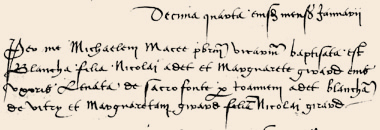 Decima quarta eiusd mensis Januarii
Per me Michaelem Macee pbrm vicarium baptisata est
Blancha filia Nicolai adet et Margarete girard eius
uxoris Levata de sacro fonte p Joannem adet blancha
de vitry et Margaretam girard filia Nicolai girard